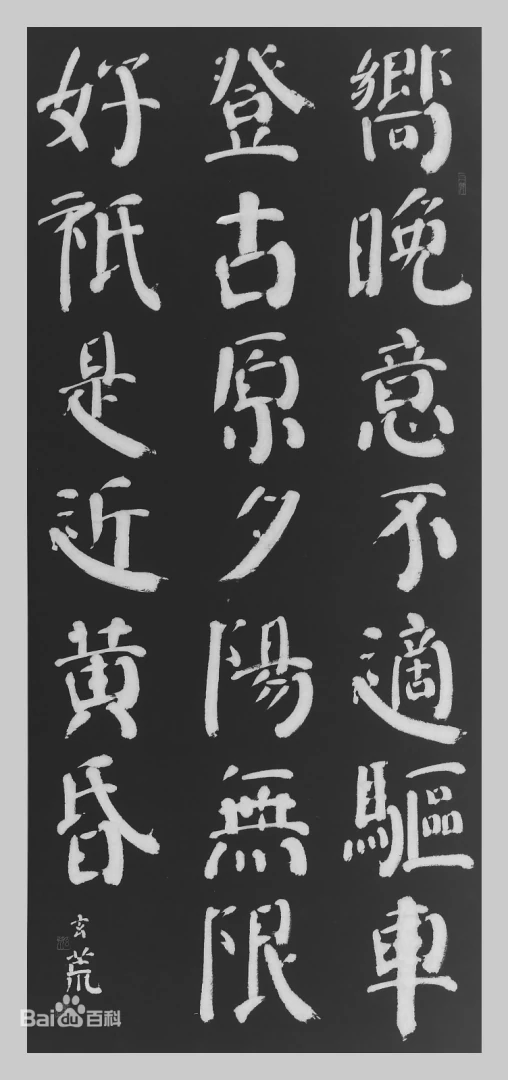 嚮晚意不適驅車
登古原夕陽無限
好祇是近黃昏
玄荒
Baidu百科